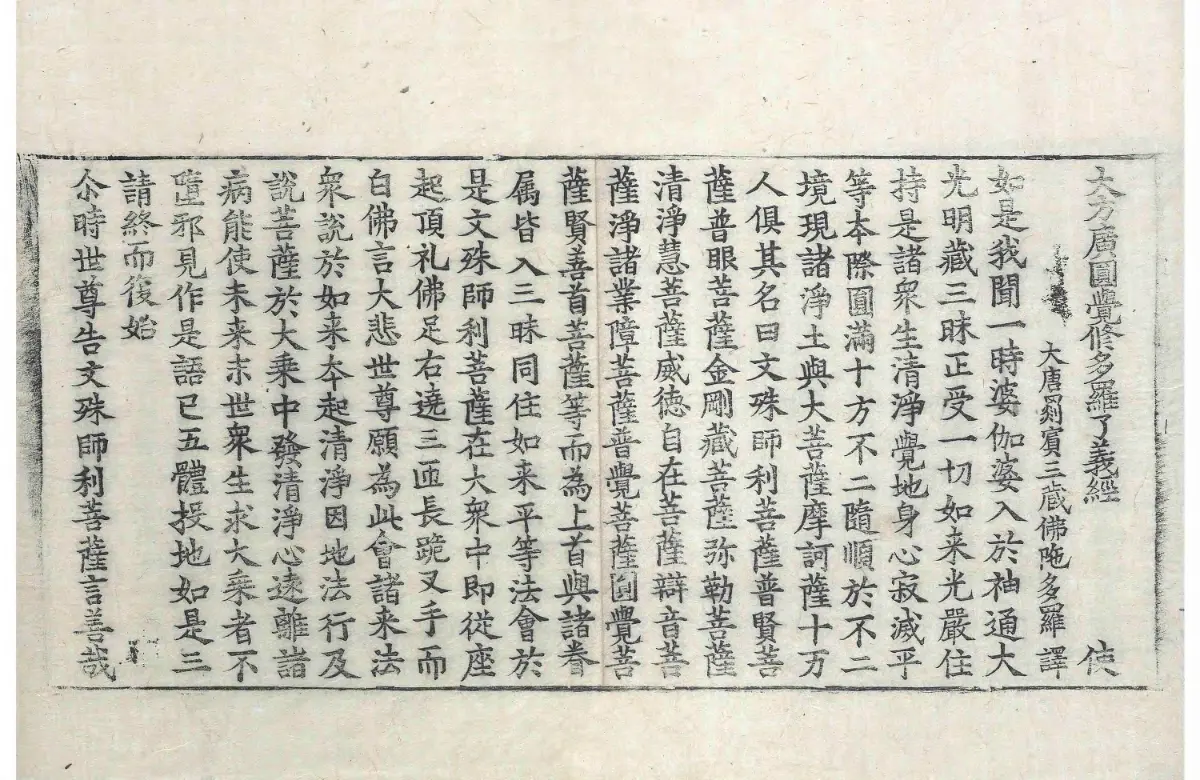 大方廣圓覺修多羅了義經 使
大唐罽賓三藏佛陁多羅 譯
如是我聞一時婆伽婆入於神通大
光明藏三昧正受一切如来光嚴住
持是諸衆生清淨覺地身心寂滅平
等本際圓滿十方不二隨順於不二
境現諸淨土與大菩薩摩訶薩十万
人俱其名曰文殊師利菩薩普賢菩
薩普眼菩薩金剛藏菩薩弥勒菩薩
清淨慧菩薩威徳自在菩薩辯音菩
薩淨諸業障菩薩普覺菩薩圓覺菩
薩賢善首菩薩等而為上首與諸眷
属皆入三昧同住如来平等法會於
是文殊師利菩薩在大衆中即從座
起頂礼佛足右遶三匝長跪叉手而
白佛言大悲世尊願為此會諸来法
衆說於如来本起清淨因地法行及
說菩薩於大乘中發清淨心遠離諸
病能使未来末世衆生求大乘者不
墮邪見作是語已五體投地如是三
請終而復始
尒時世尊告文殊師利菩薩言善哉